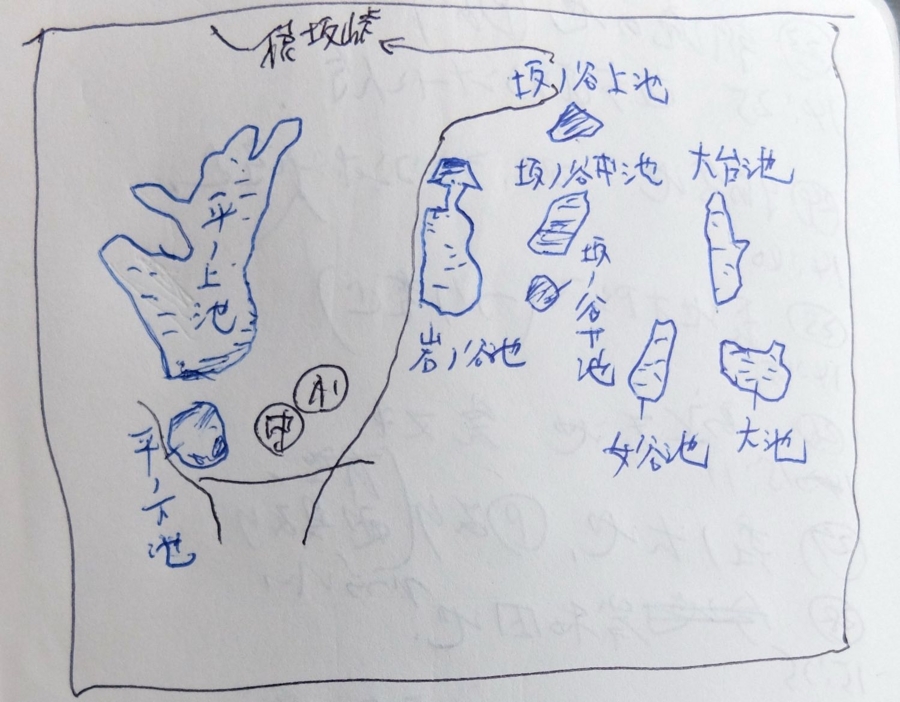 坂峠
坂ノ谷上池
坂ノ谷中池
大台池
平ノ上池
坂ノ谷下池
岩ノ谷池
小
中
女谷池
大池
平ノ下池